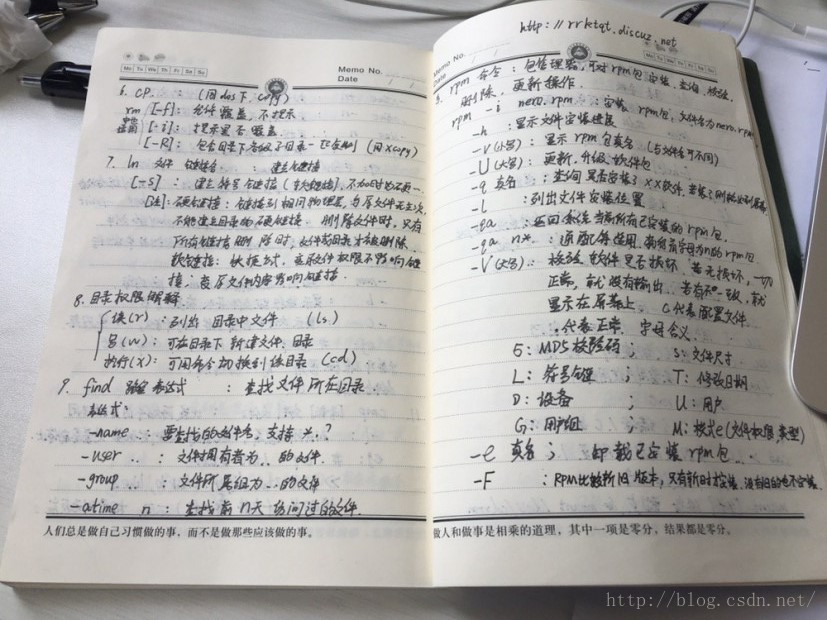 Mo Tu We Th Fr Sa Su
Memo No.
Date
6. cp. (同dos下 copy)
rm [-f]: 允许覆盖, 不提示.
[-i]: 提示是否覆盖.
[-R]: 包含目录下各级子目录一起复制 (同xcopy)
7. ln 文件 链接名 : 建立链接
[-s] : 建立符号链接 (软链接),
硬链接: 链接到相同物理层,
不能建立目录的硬链接. 删除文件时, 只有
所有链接删除时, 文件或目录才被删除.
软链接: 快捷方式, 链接文件权限不影响链
接, 原文件内容影响链接.
8. 目录权限解释
读(r) : 列出目录中文件 (ls)
写(w) : 可在目录下新建文件. 目录
执行(x): 可用命令切换到该目录 (cd)
9. find 路径 表达式 : 查找文件所在目录
表达式:
-name : 要查找的文件名, 支持 *. ?
-user .. : 文件拥有者为 .. 的文件.
-group .. : 文件所属组为 .. 的文件
-atime n : 查找前n天访问过的文件.
人们总是做自己习惯做的事，而不是做那些应该做的事。
http://rrktqt.discuz.net
Memo No.
Date
rpm 命令 : 包管理器, 可对rpm包安装, 查询, 校验,
删除, 更新操作.
rpm -i nero.rpm : 安装 rpm包, 文件名为nero.rpm
-h : 显示文件安装进度
-v(小写): 显示rpm包真名 (与文件名可不同)
-U(大写): 更新. 升级软件包
-q 真名 : 查询是否安装了XX软件,
-l : 列出文件安装位置
-qa : 返回系统当前所有已安装的rpm包.
-qa n* : 通配符使用,
-V(大写) : 校验软件是否损坏, 若无损坏, 一切
正常, 就没有输出. 若有不一致, 就
显示在屏幕上. c代表配置文件
. 代表正常. 字母含义.
5: MD5校验码 ; S: 文件尺寸
L: 符号链 ; T: 修改日期
D: 设备 ; U: 用户
G: 用户组 ; M: 模式e(文件权限 类型)
-e 真名 ; 卸载已安装rpm包
-F : RPM比较新旧版本, 只有新时才安装, 没有旧的也不安装.
做人和做事是相乘的道理，其中一项是零分，结果都是零分。
http://blog.csdn.net/